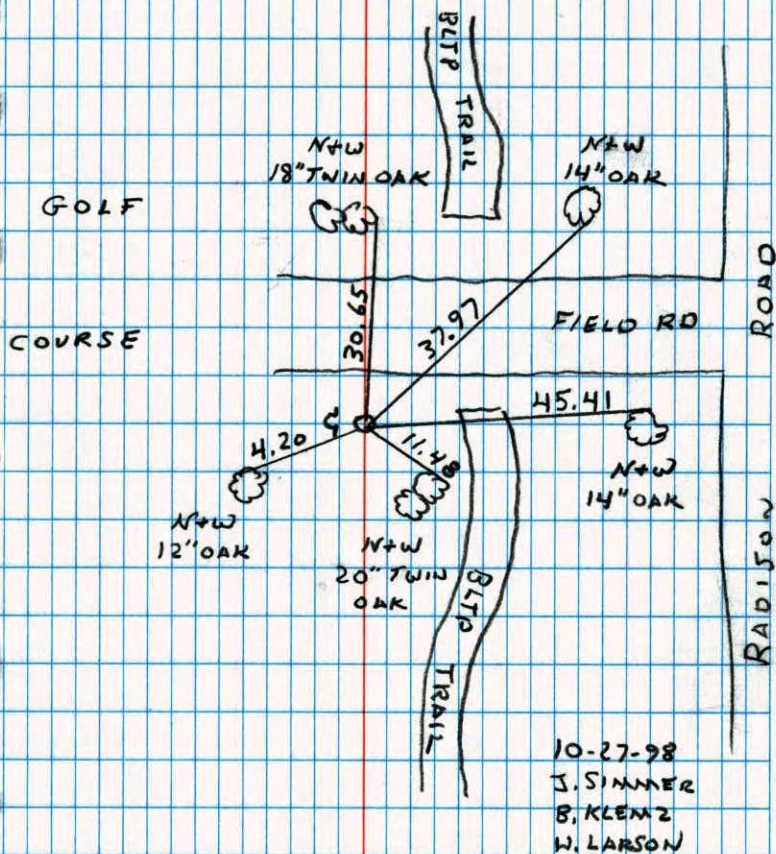 BLTP TRAIL
N+W
18" TWIN OAK
N+W
14" OAK
GOLF
COURSE
30.65
37.97
FIELD RD
RADISON ROAD
45.41
4.20
11.48
N+W
14" OAK
N+W
12" OAK
N+W
20" TWIN
OAK
BLTP TRAIL
10-27-98
J. SIMMER
B. KLEMZ
W. LARSON